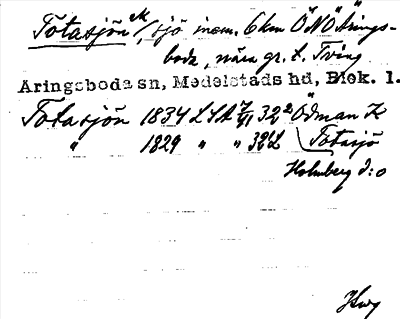 Totasjön ek, sjö inom. 6 km ÖNÖ Årings-
boda, nära gr. t. Tving
Åringsboda sn, Medelstads hd, Blek. l.
Totasjön 1834 LSA Ödman K
" 1829 " " Totasjö
Holmberg d:o